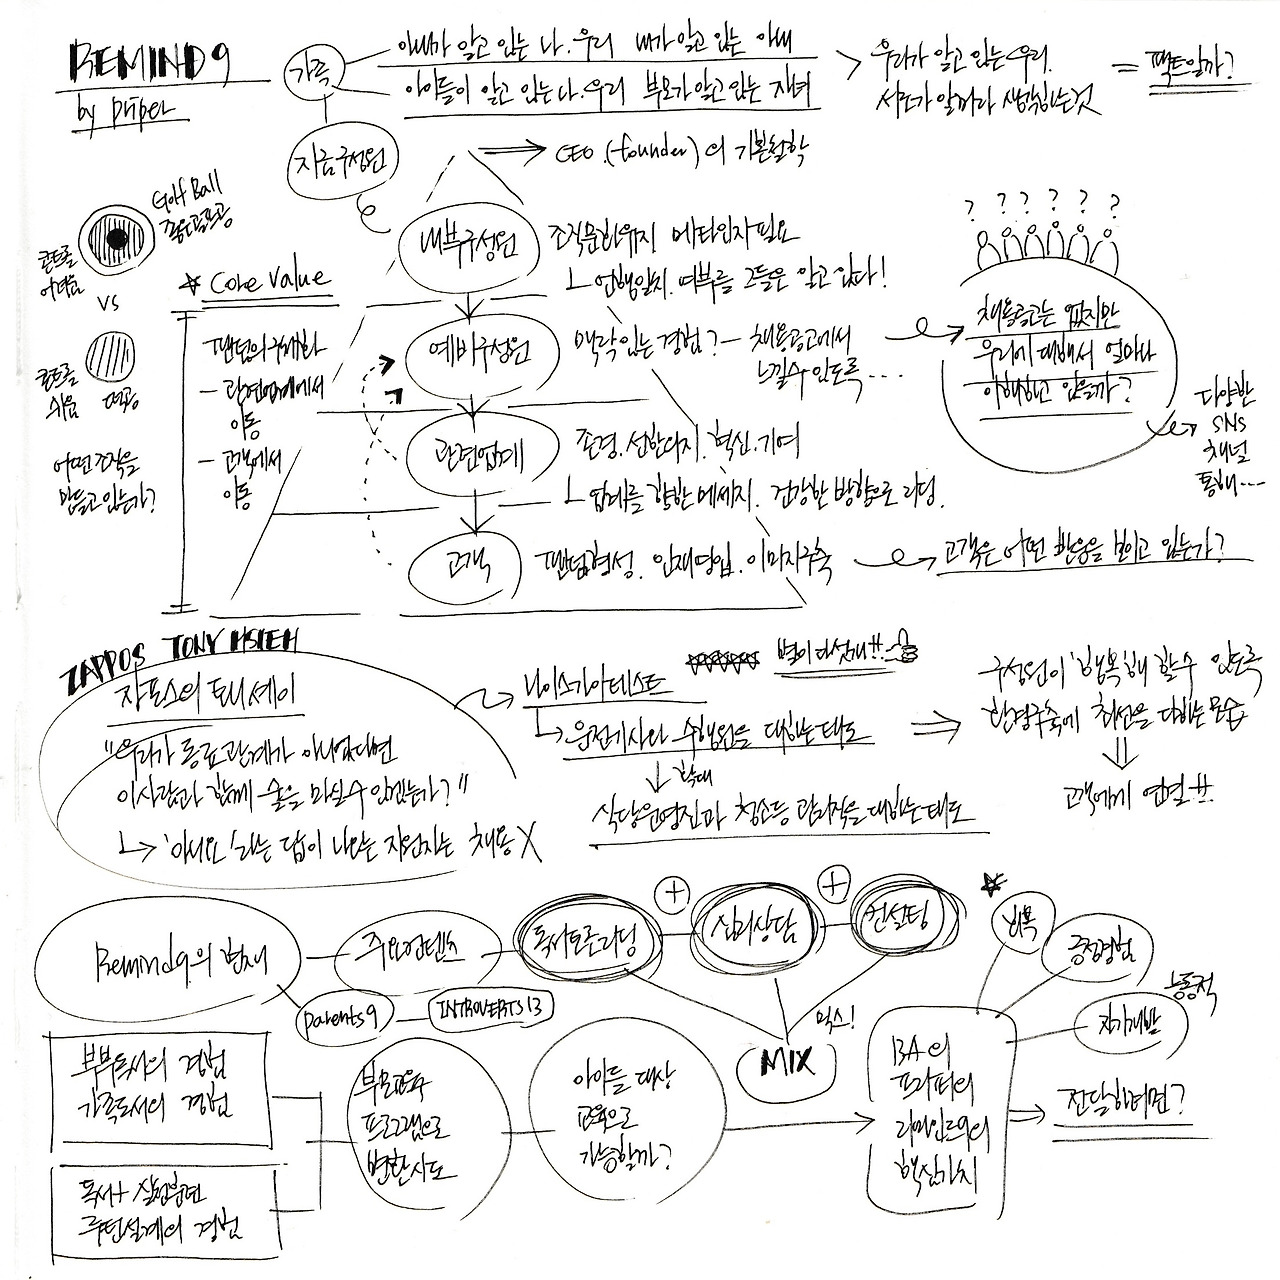 REMIND9
by prüper
가족
아내가 알고 있는 나. 우리 내가 알고 있는 아내
아이들이 알고 있는 나. 우리 부모가 알고 있는 자녀
우리가 알고 있는 우리.
서로가 알거라 생각하는 것
= 팩트일까?
지금구성원
CEO (founder)의 기본철학
Golf Ball
콘트롤
어려움
VS
콘트롤
쉬움
어떤 조직을
만들고 있는가?
★ Core Value
팬덤의 구체화
- 관련업계에서
이동
- 고객에서
이동
내부구성원
조직문화유지 메타인지 필요
ㄴ 언행일치. 여부를 그들은 알고 있다!
예비구성원
맥락있는 경험? - 채용공고에서
느낄수 있도록 ...
? ? ? ? ? ?
채용공고는 없지만
우리에 대해서 얼마나
이해하고 있을까?
다양한
SNS
채널
통해...
관련업계
존경. 선한의지. 혁신. 기여
ㄴ 업계를 향한 메세지. 건강한 방향으로 리딩.
고객
팬덤형성. 인재영입. 이미지구축
고객은 어떤 반응을 보이고 있는가?
ZAPPOS TONY HSIEH
자포스의 토니셰이
"우리가 동료관계가 아니었다면
이사람과 함께 술을 마실수 있겠는가?"
ㄴ> '아니요'라는 답이 나오는 지원자는 채용 X
나이스가이테스트
별이 다섯개!!
운전기사와 수행원을 대하는 태도
확대
식당운영진과 청소등 관리직을 대하는 태도
구성원이 '행복'해 할수 있도록
환경구축에 최선을 다하는 모습
고객에게 연결!!
Remind9의 현재
주요컨텐츠
독서토론리딩
+
심리상담
+
컨설팅
parents9
INTROVERTS13
믹스!
MIX
부부독서의 경험
가족독서의 경험
독서+ 실천훈련
루틴설계의 경험
부모교육
프로그램으로
변환시도
아이들 대상
교육으로
가능할까?
BA의
프리퍼의
리마인드9의
핵심가치
★
회복
긍정경험
능동적
자기계발
전달하려면?